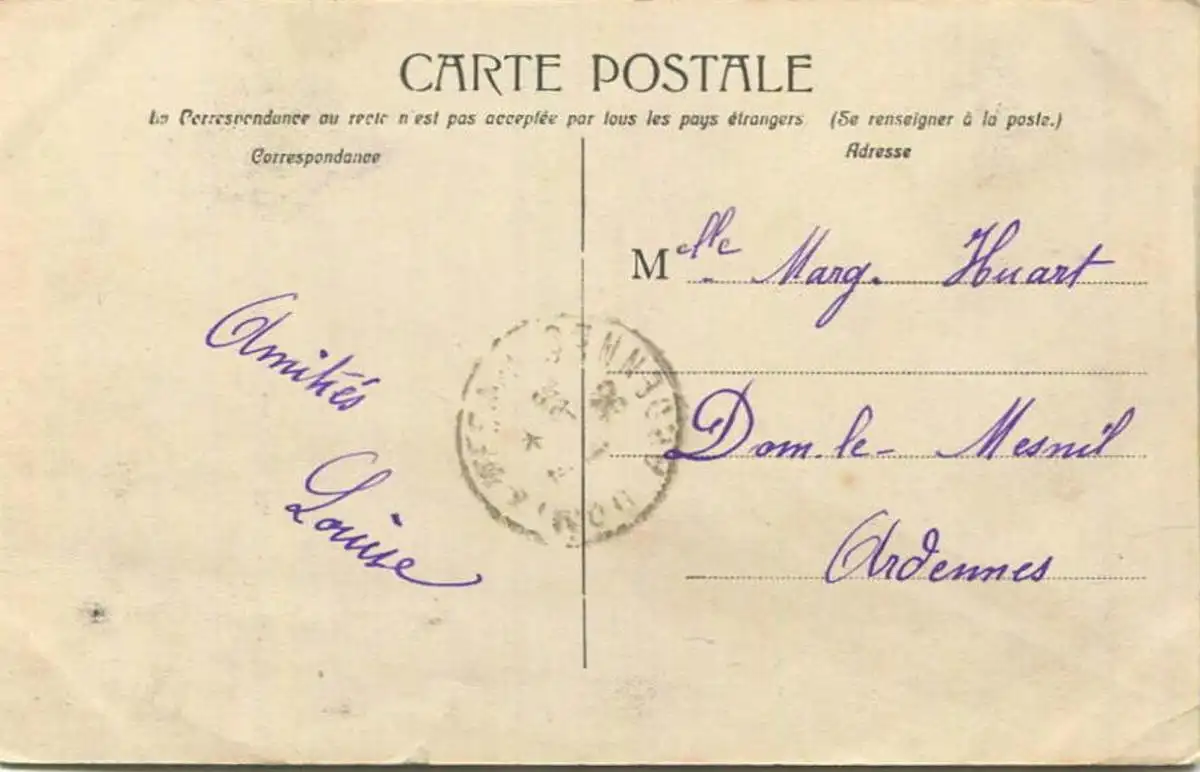 CARTE POSTALE
La Correspondance au recto n'est pas acceptée par tous les pays étrangers (Se renseigner à la poste.)
Correspondance
Adresse
Amitiés
Louise
Melle Marg. Huart
Dom-le-Mesnil
Ardennes
ARDENNES